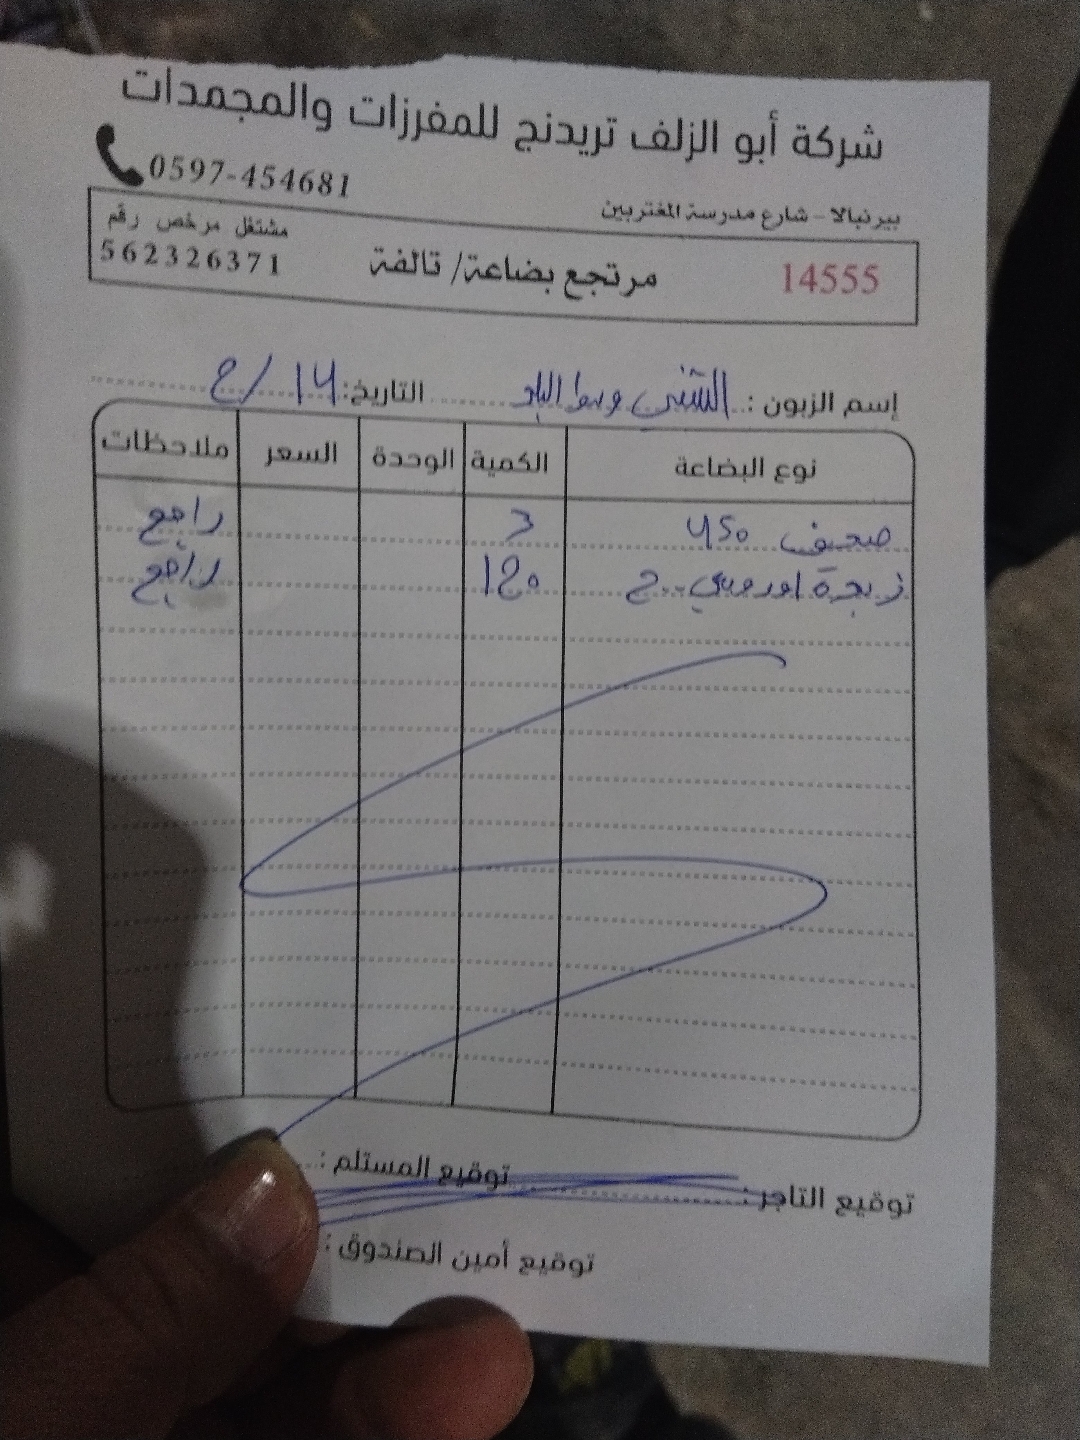 شركة أبو الزلف تريدنج للمفرزات والمجمدات
0597-454681
بيرنبالا - شارع مدرسة المغتربين
مشتغل مرخص رقم
562326371
مرتجع بضاعة/ تالفة
14555
إسم الزبون : وسط البلد التاريخ:
نوع البضاعة الكمية الوحدة السعر ملاحظات
راجع
زبدة راجع
توقيع المستلم :
توقيع التاجر :
توقيع أمين الصندوق :